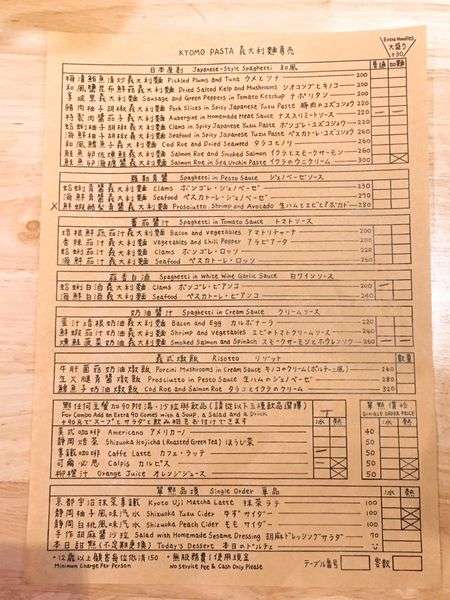 KYOMO PASTA 義大利麵專売
Extra Noodles 大盛り +30
日本原創 Japanese-Style Spaghetti 和風 普通 加麵
梅漬鮪魚清炒義大利麵 Pickled Plums and Tuna ウメとツナ 200
和風鹽昆布鮮菇義大利麵 Dried Salted Kelp and Mushrooms シオコンブとキノコ 200
拿坡里義大利麵 Sausage and Green Peppers in Tomato Ketchup ナポリタン 200
豬肉柚子胡椒義大利麵 Pork Slices in Spicy Japanese Yuzu Paste 豚肉のユズコショウ
特製肉醬茄子義大利麵 Aubergine in Homemade Meat Sauce ナスミートソース
蛤蜊柚子胡椒義大利麵 Clams in Spicy Japanese Yuzu Paste ボンゴレ・ユズコショウ
海鮮柚子胡椒義大利麵 Seafood in Spicy Japanese Yuzu Paste ペスカトーレ・ユズコショウ
和風鱈魚子義大利麵 Cod Roe and Dried Seaweed タラコとノリ
鮭魚卵佐燻鮭義大利麵 Salmon Roe and Smoked Salmon イクラとスモークサーモン
鮭魚卵海膽義大利麵 Salmon Roe in Sea Urchin Paste イクラのウニクリーム
羅勒青醬 Spaghetti in Pesto Sauce ジェノベーゼ
蛤蜊青醬義大利麵 Clams ボンゴレ・ジェノベーゼ
海鮮青醬義大利麵 Seafood ペスカトーレ・ジェノベーゼ 270
鮮蝦酪梨青醬義大利麵 Prosciutto Shrimp and Avocado 生ハムとエビとアボカド
蕃茄醬汁 Spaghetti in Tomato Sauce トマトソース
培根鮮蔬茄汁義大利麵 Bacon and Vegetables アマトリチャーナ 200
香辣茄汁義大利麵 Vegetables and Chili Pepper アラビアータ 200
蛤蜊茄汁義大利麵 Clams ボンゴレ・ロッソ 220
海鮮茄汁義大利麵 Seafood ペスカトーレ・ロッソ 250
蒜香白油 Spaghetti in White Wine Garlic Sauce 白ワインソース
蛤蜊白油義大利麵 Clams ボンゴレ・ビアンコ
海鮮白油義大利麵 Seafood ペスカトーレ・ビアンコ 260
奶油醬汁 Spaghetti in Cream Sauce クリームソース
蛋汁培根奶油義大利麵 Bacon and Egg カルボナーラ 220
鮮蝦茄汁奶油義大利麵 Shrimp and Vegetables エビのトマトクリームソース
燻鮭菠菜奶油義大利麵 Smoked Salmon and Spinach スモークサーモンとホウレンソウ
義式燉飯 Risotto リゾット 數量
牛肝菌菇奶油燉飯 Porcini Mushrooms in Cream Sauce キノコのクリーム(ポルチーニ風) 240
生火腿青醬燉飯 Prosciutto in Pesto Sauce 生ハムのジェノベーゼ 280
鱈魚子奶油燉飯 Cod Roe and Salmon Roe タラコとイクラのクリーム 320
點任何主餐加90附湯、沙拉與飲品(請從以下三種飲品選擇)
For Combo Add an Extra 90 comes with a Soup, a Salad and a Drink.
+90元でスープとサラダと飲み物をお付けできます 冰 熱
單點價格 Single Order Price 冰 熱
美式咖啡 Americano アメリカーノ 40
靜岡焙茶 Shizuoka Hojicha (Roasted Green Tea) ほうじ茶 50
拿鐵咖啡 Caffe Latte カフェ・ラッテ 50
可爾必思 Calpis カルピス 50
柳橙汁 Orange Juice オレンジジュース 50
單點品項 Single Order 単品
京都宇治抹茶拿鐵 Kyoto Uji Matcha Latte 抹茶ラテ 100
靜岡柚子風味汽水 Shizuoka Yuzu Cider ゆずサイダー 100
靜岡白桃風味汽水 Shizuoka Peach Cider モモサイダー 100
手作胡麻醬沙拉 Salad with Homemade Sesame Dressing 胡麻ドレッシングサラダ 70
本日甜點(不定期更換) Today's Dessert 本日のドルチェ
・12歲以上顧客每位低消150 ・無服務費/使用現金
Minimum Charge Per Person No Service Fee & Cash Only Please
テーブル番号 客数